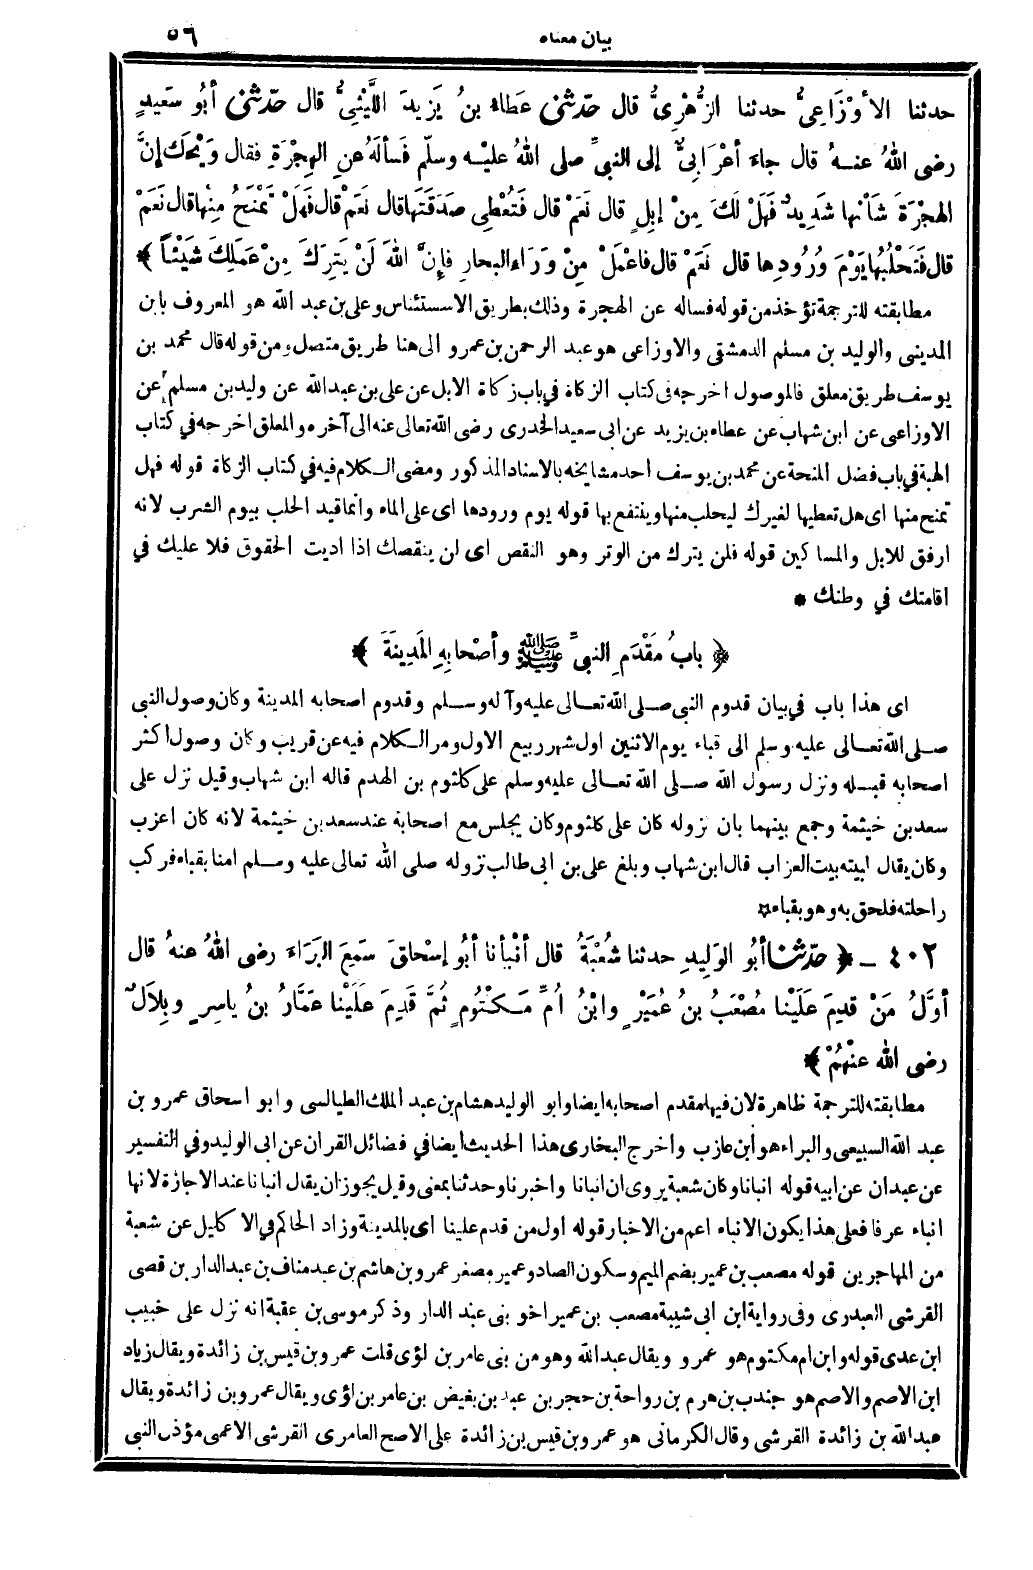 بيان معناه ٥٦
حدثنا الأوْزَاعِىُّ حدثنا الزُّهْرِىُّ قال حدّثنى عَطَاءُ بنُ يَزِيدَ اللَّيْثِىُّ قال حدّثنى أبُو سَعِيدٍ
رضى اللهُ عنـهُ قال جاءَ أعْرَابِىٌّ إلى النبىِّ صلى اللهُ عليْـه وسلّم فَسألَهُ عنِ الهِجْرَةِ فقال وَيْحَكَ إنَّ
الهِجْرَةَ شَأنُها شَدِيدٌ فَهَلْ لَكَ مِنْ إبِلٍ قال نَعَمْ قال فَتُعْطِى صَدَقَتَهَا قال نَعَمْ قال فَهَلْ تَمْنَحُ مِنْها قال نَعَمْ
قال فَتَحْلُبُها يَوْمَ وُرُودِها قال نَعَمْ قال فاعْمَلْ مِنْ وَرَاءِ البحارِ فإِنَّ اللهَ لَنْ يَتِرَكَ مِنْ عَمَلِكَ شَيْئاً ﴾
مطابقته للترجمة تؤخذ من قوله فساله عن الهجرة وذلك بطريق الاستئناس وعلى بن عبد الله هو المعروف بابن
المدينى والوليد بن مسلم الدمشقى والاوزاعى هو عبد الرحمن بن عمرو الى هنا طريق متصل ومن قوله قال محمد بن
يوسف طريق معلق فالموصول اخرجه فى كتاب الزكاة فى باب زكاة الابل عن على بن عبدالله عن وليد بن مسلم عن
الاوزاعى عن ابن شهاب عن عطاء بن يزيد عن ابى سعيد الخدرى رضى الله تعالى عنه الى آخره والمعلق اخرجه فى كتاب
الهبة فى باب فضل المنحة عن محمد بن يوسف احد مشايخه بالاسناد المذكور ومضى الكلام فيه فى كتاب الزكاة قوله فهل
تمنح منها اى هل تعطيها لغيرك ليحلب منها وينتفع بها قوله يوم ورودها اى على الماء وانما قيد الحلب بيوم الشرب لانه
ارفق للابل والمساكين قوله فلن يترك من الوتر وهو النقص اى لن ينقصك اذا اديت الحقوق فلا عليك فى
اقامتك في وطنك *
﴿ بابُ مَقْدَمِ النبىِّ ﷺ وأصْحابِهِ المَدِينَةَ ﴾
اى هذا باب في بيان قدوم النبى صلى الله تعالى عليه وآله وسلم وقدوم اصحابه المدينة وكان وصول النبى
صلى الله تعالى عليه وسلم الى قباء يوم الاثنين اول شهر ربيع الاول ومر الكلام فيه عن قريب وكان وصول اكثر
اصحابه قبله ونزل رسول الله صلى الله تعالى عليه وسلم على كلثوم بن الهدم قاله ابن شهاب وقيل نزل على
سعد بن خيثمة وجمع بينهما بان نزوله كان على كلثوم وكان يجلس مع اصحابه عند سعد بن خيثمة لانه كان اعزب
وكان يقال لبيته بيت العزاب قال ابن شهاب وبلغ على بن ابى طالب نزوله صلى الله تعالى عليه وسلم امنا بقباء فركب
راحلته فلحق به وهو بقباء *
٤٠٢ ـ ﴿ حدّثنا أبُو الوَلِيدِ حدثنا شُعْبَةُ قال أنْبأنا أبُو إسْحاقَ سَمِعَ البَرَاءَ رضى اللهُ عنهُ قال
أوَّلُ مَنْ قَدِمَ عَلَيْنا مُصْعَبُ بنُ عُمَيْرٍ وابْنُ اُمِّ مَكْتُومٍ ثُمَّ قَدِمَ عَلَيْنا عَمَّارُ بنُ ياسِرٍ وبِلاَلٌ
رضى الله عنْهُمْ ﴾
مطابقته للترجمة ظاهرة لان فيها مقدم اصحابه ايضا وابو الوليد هشام بن عبد الملك الطيالسى وابو اسحاق عمرو بن
عبد الله السبيعى والبراء هو ابن عازب وأخرج البخارى هذا الحديث ايضا فى فضائل القران عن ابى الوليد وفى التفسير
عن عبدان عن ابيه قوله انبانا وكان شعبة يروى ان انبانا واخبرنا وحدثنا بمعنى وقيل يجوز ان يقال انبانا عند الاجازة لانها
انباء عرفا فعلى هذا يكون الانباء اعم من الاخبار قوله اول من قدم علينا اى بالمدينة وزاد الحاكم فى الاكليل عن شعبة
من المهاجرين قوله مصعب بن عمير بضم الميم وسكون الصاد وعمير مصغر عمرو بن هاشم بن عبد مناف بن عبد الدار بن قصى
القرشى العبدرى وفى رواية ابن ابى شيبة مصعب بن عمير اخو بنى عبد الدار وذكر موسى بن عقبة انه نزل على خبيب
ابن عدى قوله وابن ام مكتوم هو عمرو ويقال عبد الله وهو من بنى عامر بن لؤى قلت عمرو بن قيس بن زائدة ويقال زياد
ابن الاصم والاصم هو جندب بن هرم بن رواحة بن حجر بن عبد بن بغيض بن عامر بن لؤى ويقال عمرو بن زائدة ويقال
عبد الله بن زائدة القرشى وقال الكرمانى هو عمرو بن قيس بن زائدة على الاصح العامرى القرشى الاعمى مؤذن النبى